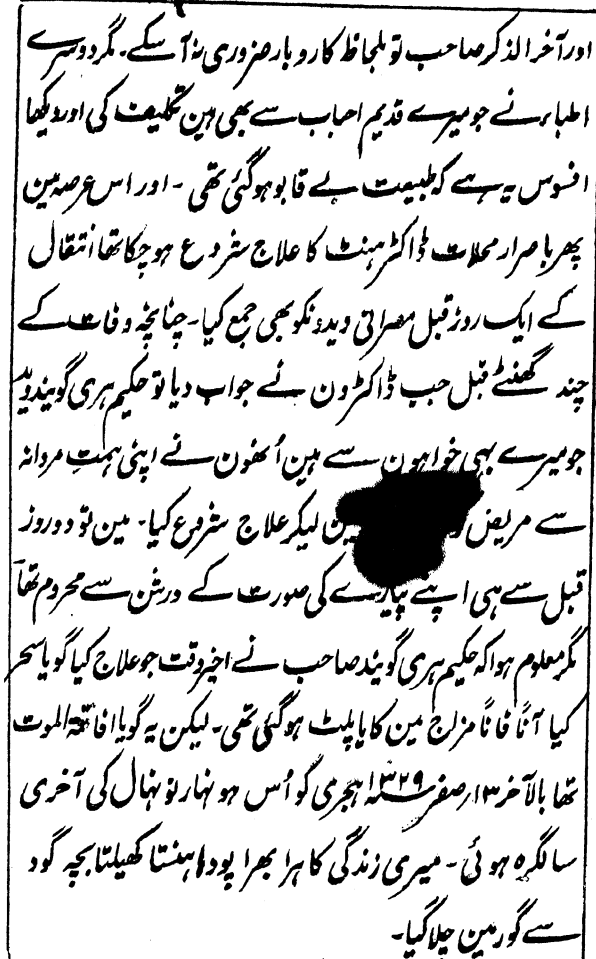 اور آخر الذکر صاحب تو بلحاظ کاروبار ضروری نہ آ سکے۔ مگر دوسرے
اطباء نے جو میرے قدیم احباب سے بھی ہین تکلیف کی اور دیکھا
افسوس یہ ہے کہ طبیعت بے قابو ہو گئی تھی ۔ اور اس عرصہ مین
پھر باصرار محلات ڈاکٹر ہنٹ کا علاج شروع ہو چکا تھا انتقال
کے ایک روز قبل مصراتی ویدونکو بھی جمع کیا۔ چنانچہ وفات کے
چند گھنٹے قبل جب ڈاکٹرون نے جواب دیا تو حکیم ہری گویند وید
جو میرے بہی خواہون سے ہین اُنھون نے اپنی ہمتِ مردانہ
سے مریض لیکر علاج شروع کیا۔ مین تو دو روز
قبل سے ہی اپنے پیارے کی صورت کے درشن سے محروم تھا
مگر معلوم ہوا کہ حکیم ہری گویند صاحب نے اخیر وقت جو علاج کیا گویا سحر
کیا آناً فاناً مزاج مین کایا پلٹ ہو گئی تھی۔ لیکن یہ گویا افاقۃ الموت
تھا بالآخر ۱۳ صفر سنہ ۱۳۲۹ ہجری کو اُس ہونہار نونہال کی آخری
سالگرہ ہوئی ۔ میری زندگی کا ہرا بھرا پودا ہنستا کھیلتا بچہ گود
سے گور مین چلا گیا۔